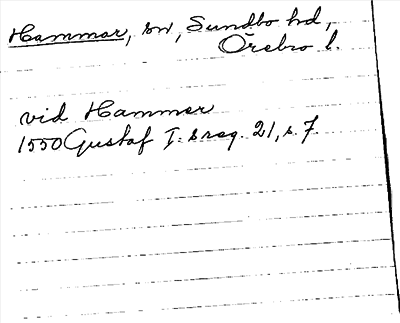 Hammar, sn, Sundbo hd,
Örebro l.
vid Hammer
1550 Gustaf I:s reg. 21, s. 7.